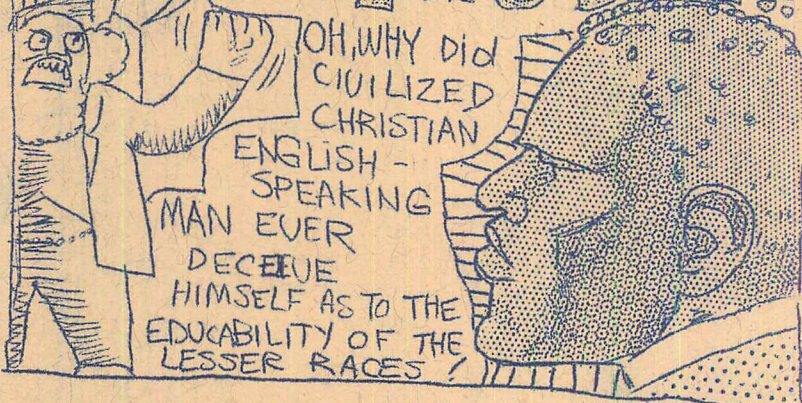 OH, WHY Did
CIVILIZED
CHRISTIAN
ENGLISH -
SPEAKING
MAN EVER
DECEIVE
HIMSELF AS TO THE
EDUCABILITY OF THE
LESSER RACES !